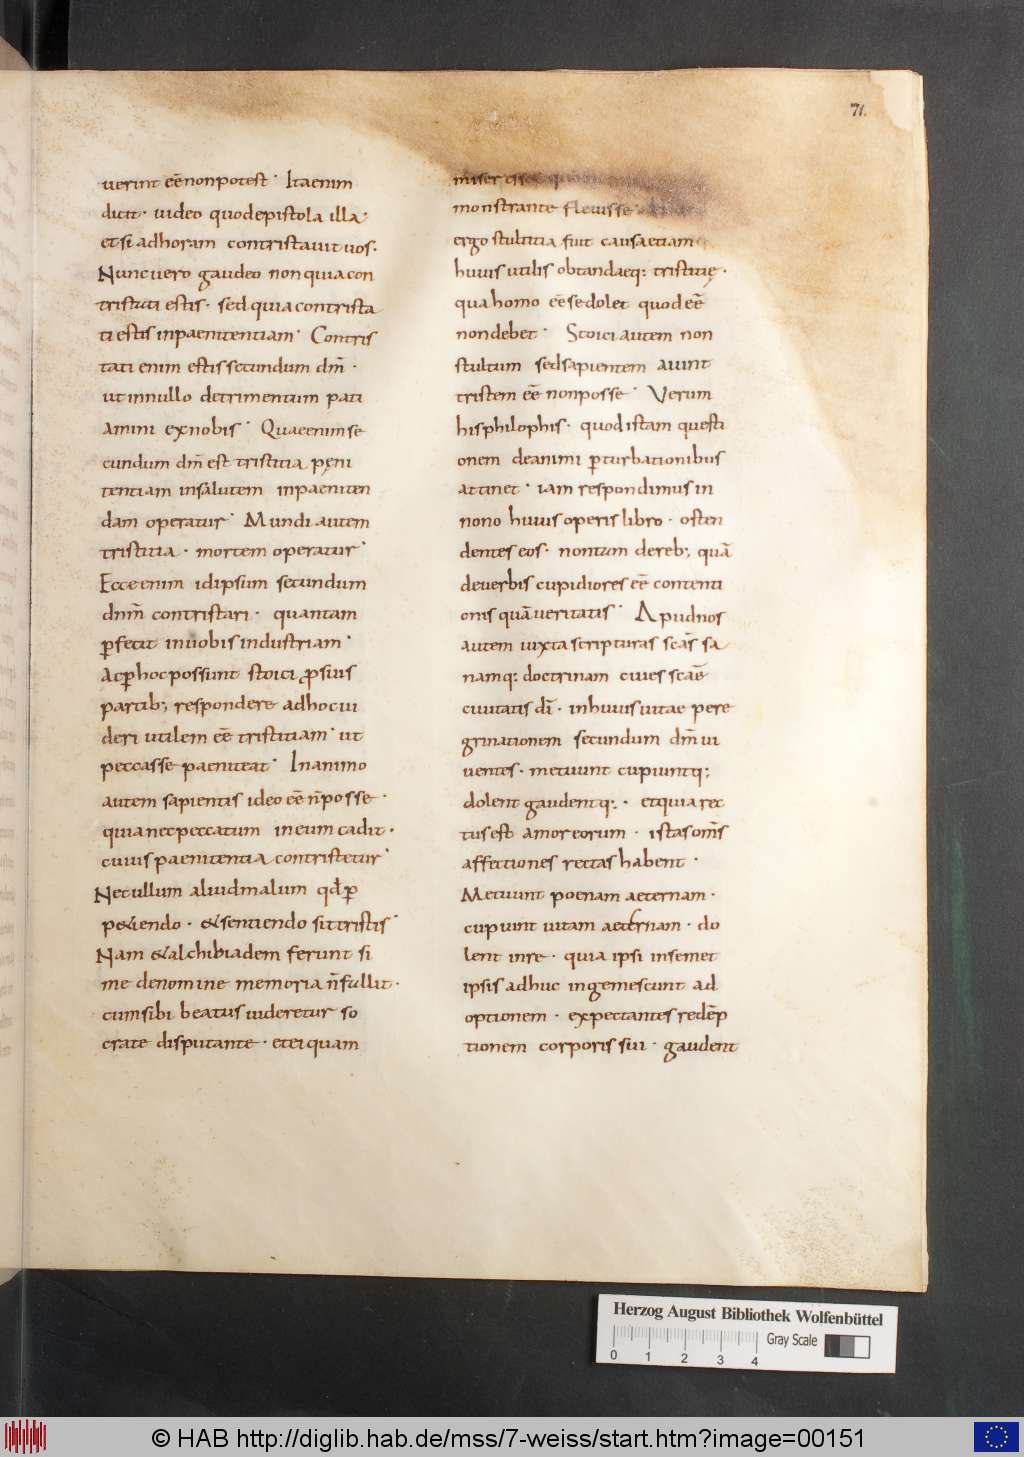 71.
uerint eē non potest · Ita enim
dicit · uideo quod epistola illa ·
et si ad horam contristauit uos ·
Nunc uero gaudeo non quia con
tristati estis · sed quia contrista
ti estis in paenitentiam · Contris
tati enim estis secundum dm̄ ·
ut in nullo detrimentum pati
amini ex nobis · Quae enim se
cundum dm̄ est tristitia pęni
tentiam in salutem inpaeniten
dam operatur · Mundi autem
tristitia · mortem operatur ·
Ecce enim id ipsum secundum
dnm̄ contristari · quantam
ꝑfecit in uobis industriam ·
Ac ꝑ hoc possunt stoici ꝓ suis
partib; respondere ad hoc ui
deri utilem eē tristitiam · ut
peccasse paeniteat · In animo
autem sapientis ideo eē n̄ posse ·
quia nec peccatum in eum cadit ·
cuius paenitentia contristetur ·
Nec ullum aliud malum qđ ꝑ
p&iendo · & sentiendo sit tristis ·
Nam & alchibiadem ferunt si
me de nomine memoria n̄ fallit ·
cum sibi beatus uideretur so
crate disputante · et ei quam
miser esset
monstrante fleuisse
ergo stultitia fuit causa etiam
huius utilis obtandaeq: tristitię ·
qua homo eē se dolet quod eē
non debet · Stoici autem non
stultum sed sapientem aiunt
tristem eē non posse · Verum
his philophis · quod istam questi
onem de animi ꝑturbationibus
attinet · iam respondimus in
nono huius operis libro · osten
dentes eos · non tam de reb; quā
de uerbis cupidiores eē contenti
onis quā ueritatis · Apud nos
autem iuxta scripturas scās sa
namq: doctrinam ciues scaē
ciuitatis dī · in huius uitae pere
grinationem secundum dm̄ ui
uentes · metuunt cupiuntq;
dolent gaudentq: · et quia rec
tus est amor eorum · istas om̄s
affectiones rectas habent ·
Metuunt poenam aeternam ·
cupiunt uitam aeternam · do
lent in re · quia ipsi in semet
ipsis adhuc ingemescunt ad
optionem · expectantes redēp
tionem corporis sui · gaudent
Herzog August Bibliothek Wolfenbüttel
Gray Scale
0 1 2 3 4
© HAB http://diglib.hab.de/mss/7-weiss/start.htm?image=00151